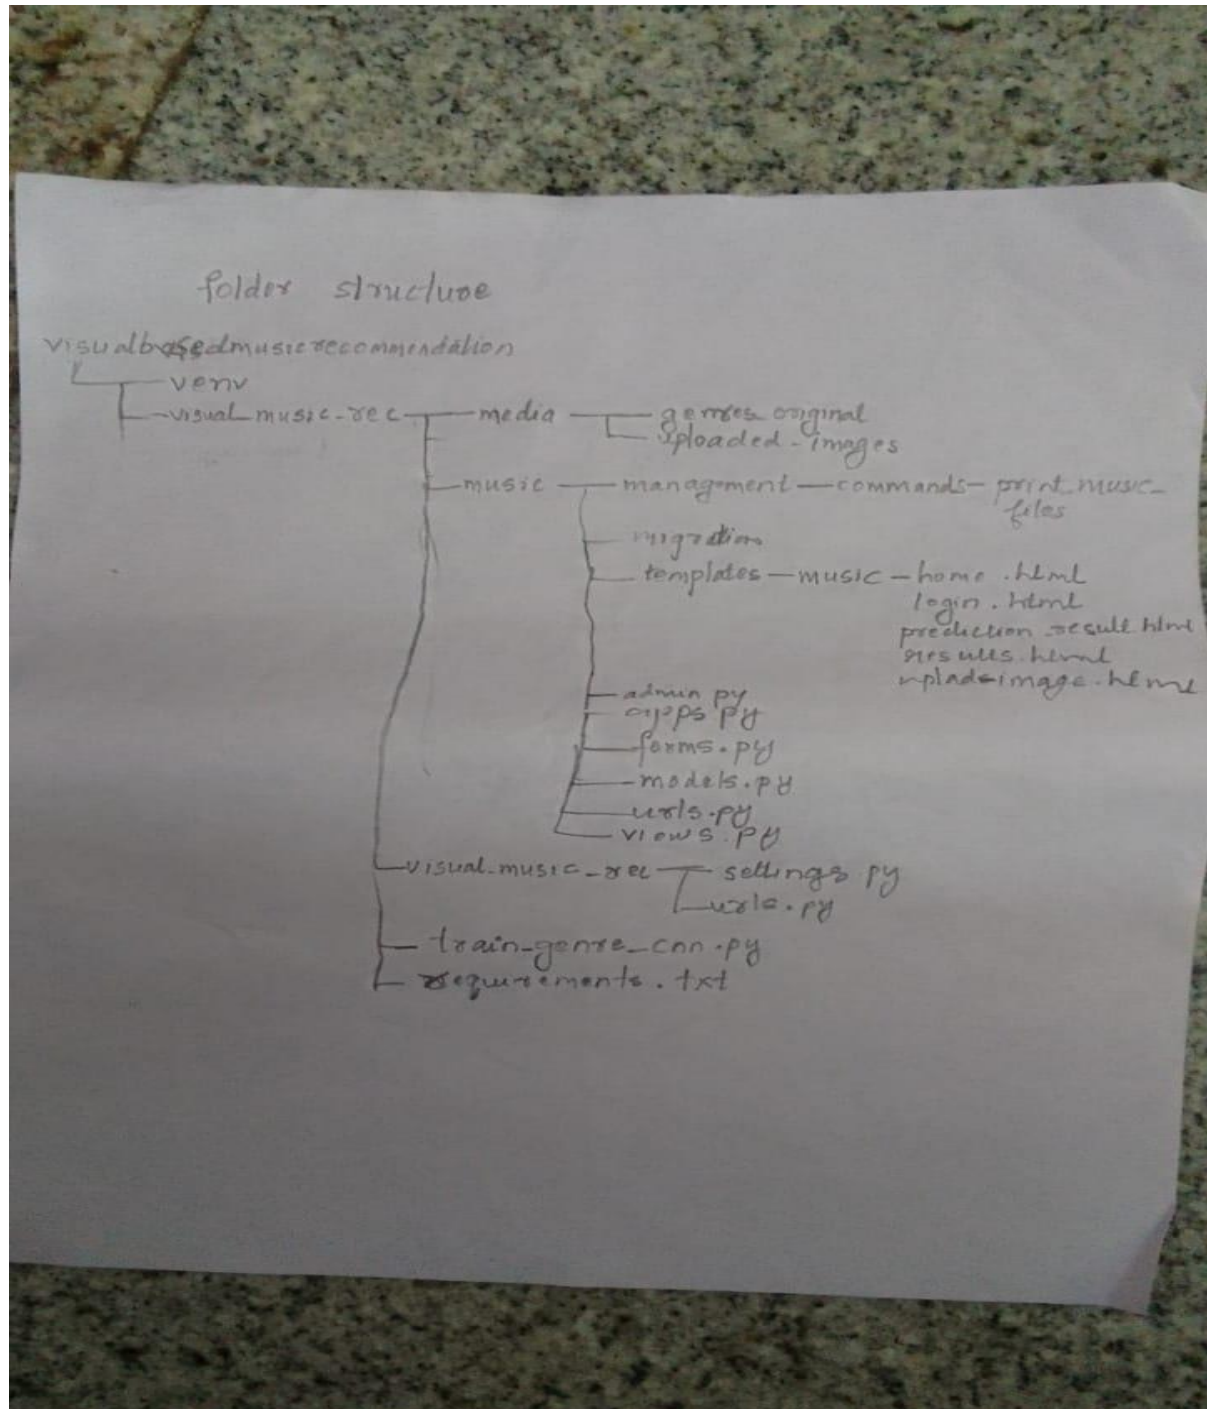 folder structure
visualbasedmusicrecommendation
venv
visual_music_rec media genres_original
uploaded_images
music management commands print_music_
files
migration
templates music home.html
login.html
prediction_result.html
results.html
uplad-image.html
admin.py
apps.py
forms.py
models.py
urls.py
views.py
visual_music_rec settings.py
urls.py
train_genre_cnn.py
requirements.txt